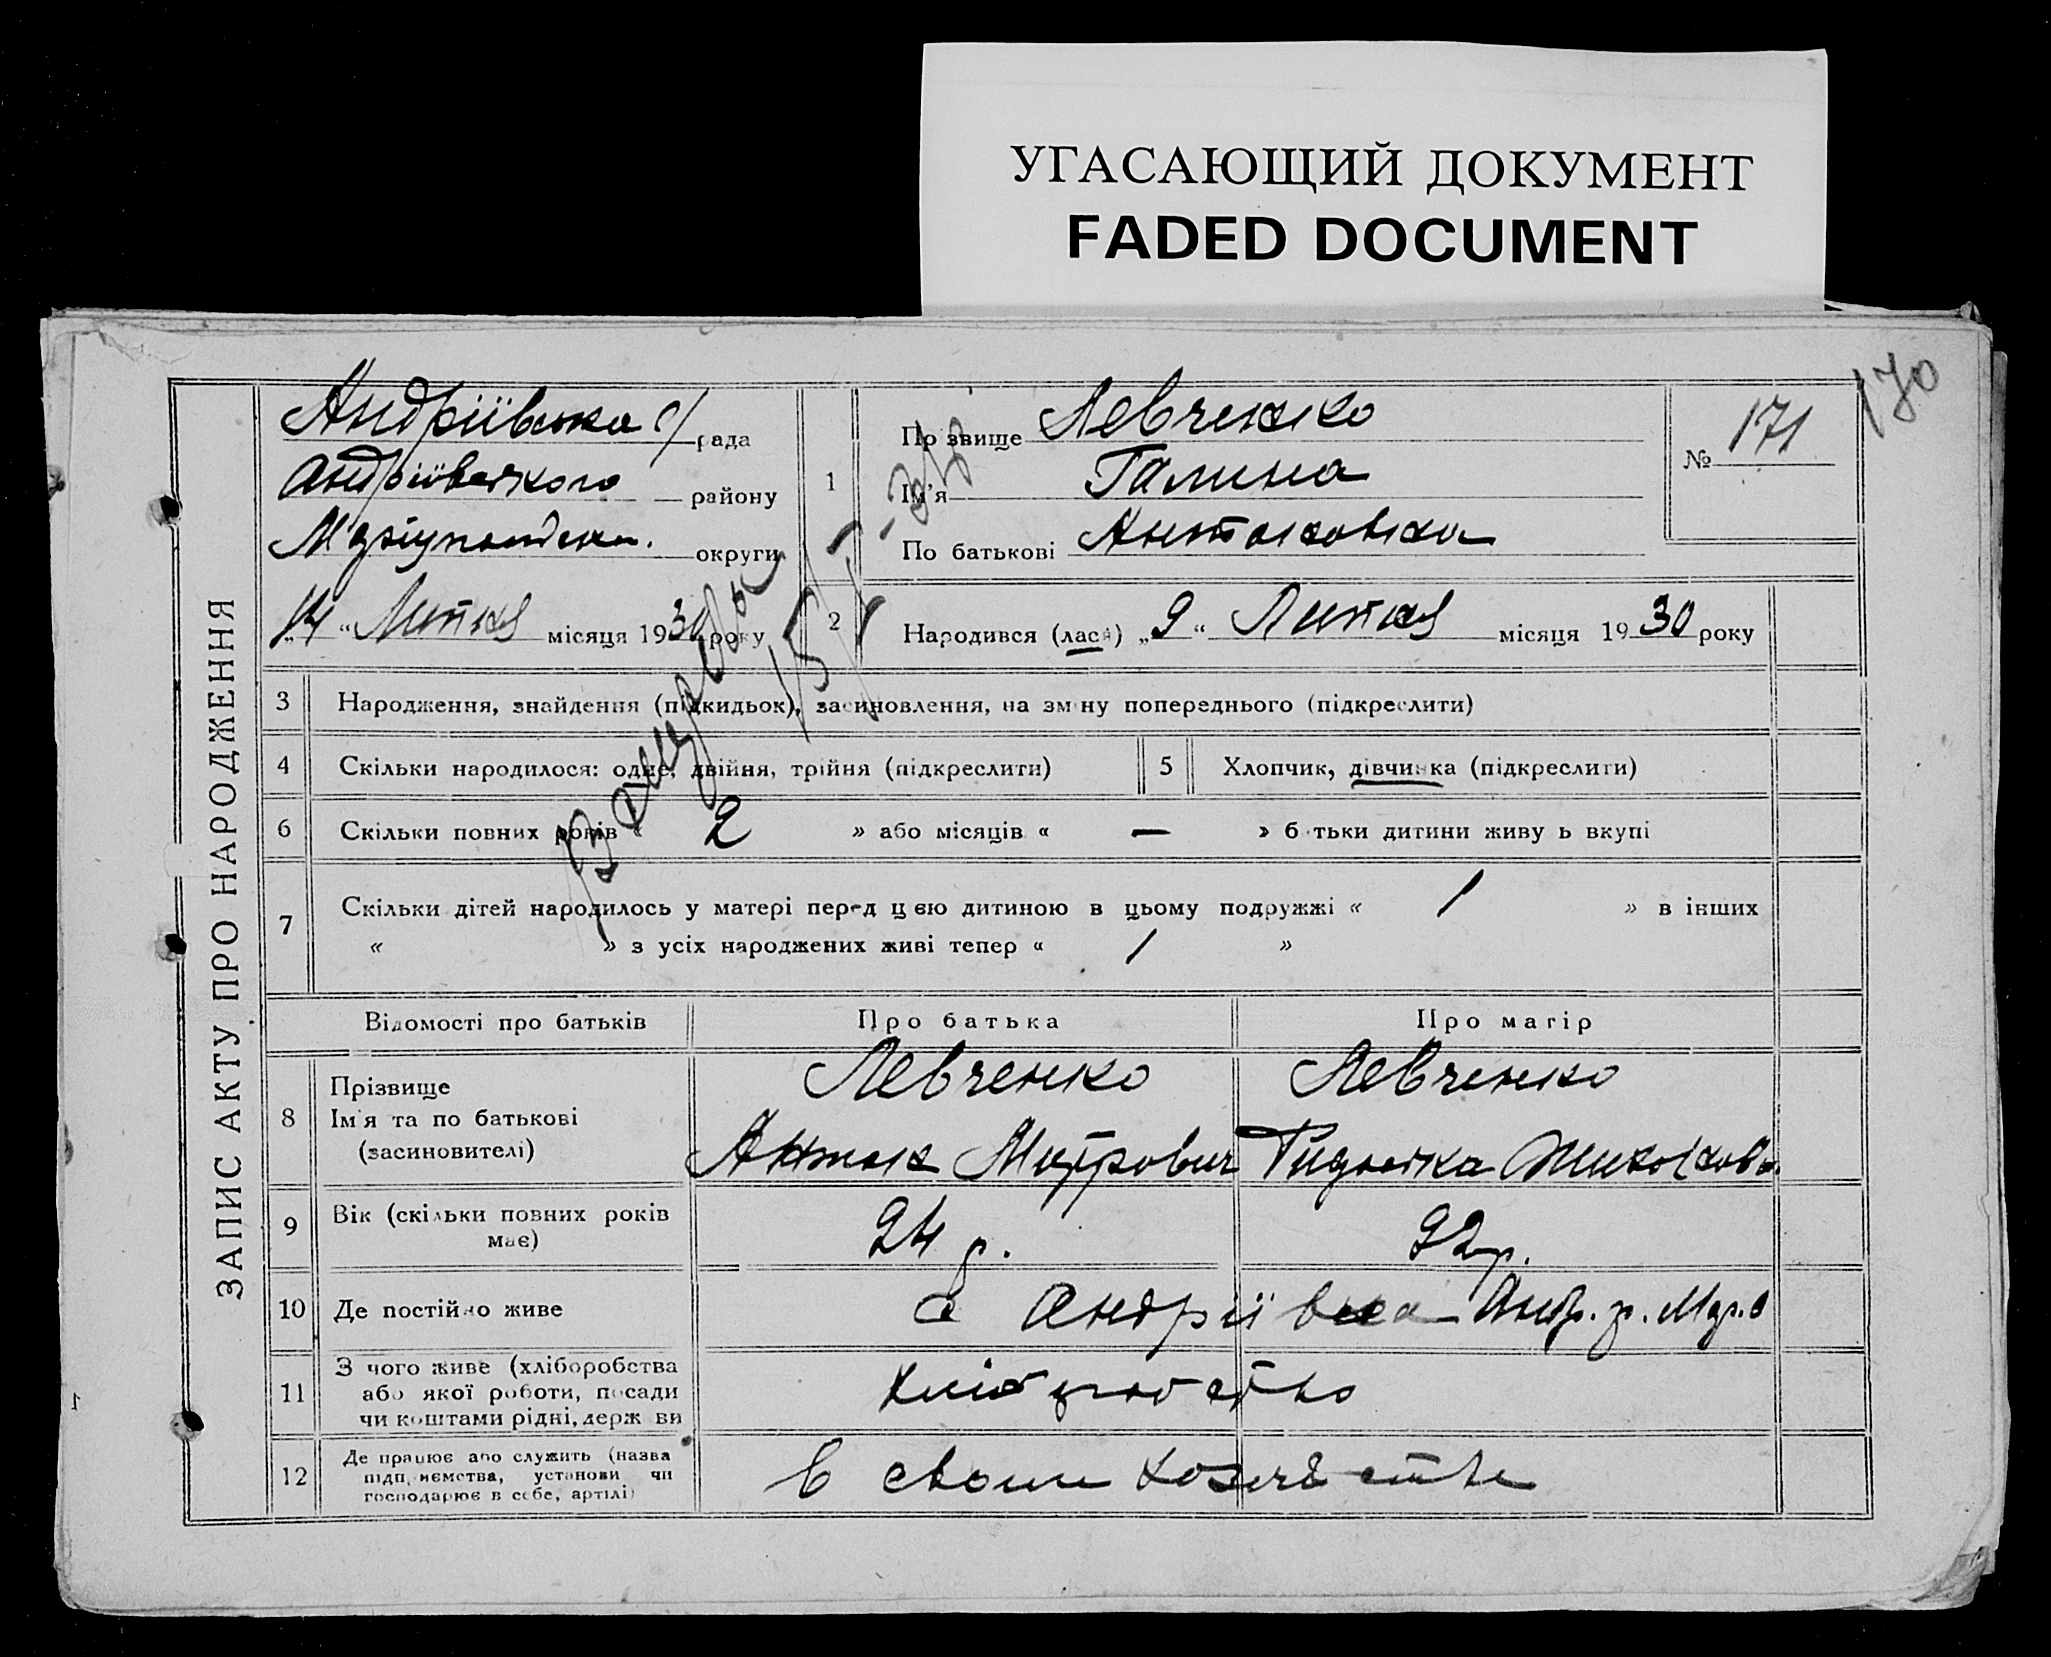 УГАСАЮЩИЙ ДОКУМЕНТ
FADED DOCUMENT
170
ЗАПИС АКТУ ПРО НАРОДЖЕННЯ
Андріївська с/рада
Андріївського району
округи
"14" Липня місяця 1930 року
1
Прізвище Левченко
Ім'я Галина
По батькові Антоновна
№ 171
2
Народився (лася) "9" Липня місяця 1930 року
3 Народження, знайдення (підкидьок), засиновлення, на зміну попереднього (підкреслити)
4 Скільки народилося: одне, двійня, трійня (підкреслити)
5 Хлопчик, дівчинка (підкреслити)
6 Скільки повних років « 2 » або місяців « — » батьки дитини живуть вкупі
7 Скільки дітей народилось у матері перед цєю дитиною в цьому подружжі « 1 » в інших
« » з усіх народжених живі тепер « 1 »
Відомості про батьків
Про батька
Про матір
8 Прізвище
Ім'я та по батькові
(засиновителі)
Левченко
Антон
Левченко
9 Вік (скільки повних років
має)
24 р.
22 р.
10 Де постійно живе
с Андріївка Андр. р. Мар. о
11 З чого живе (хліборобства
або якої роботи, посади
чи коштами рідні, держави
12 Де працює або служить (назва
підприємства, установи чи
господарює в себе, артілі)
в своим хозяйстве